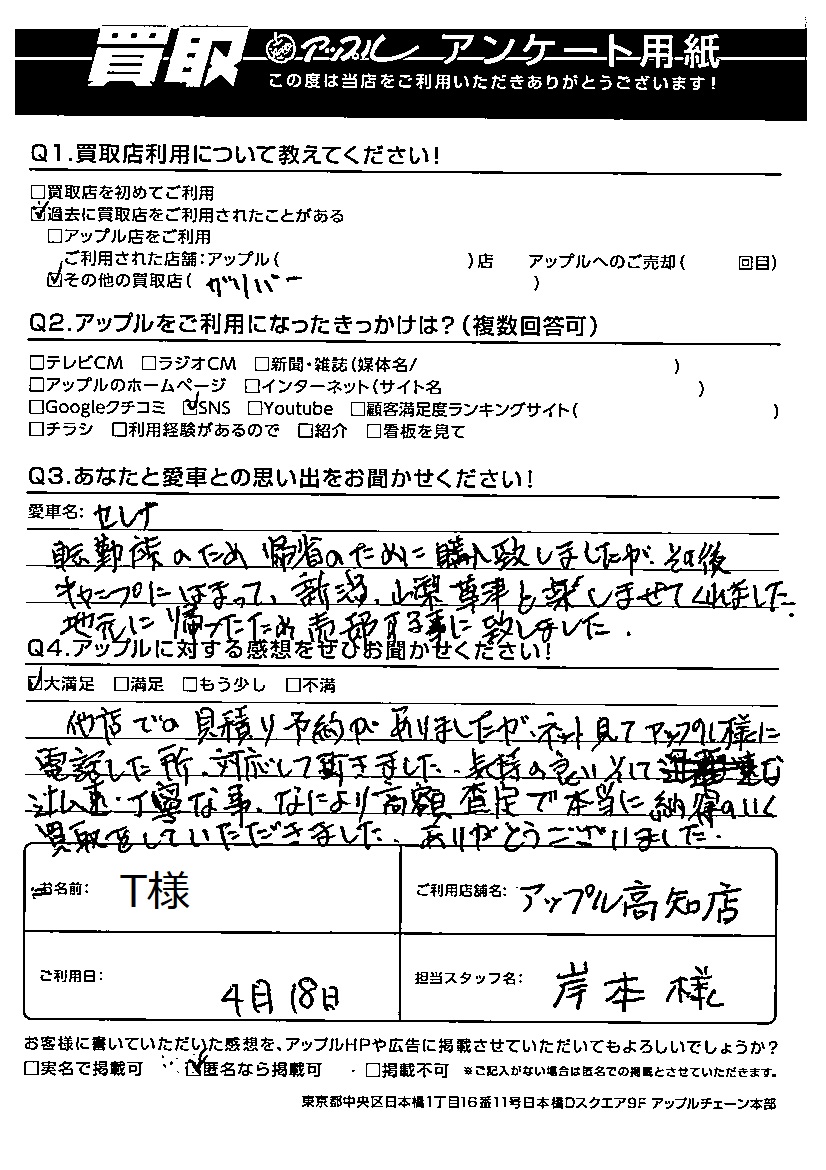 買取 アップル アンケート用紙
この度は当店をご利用いただきありがとうございます!
Q1.買取店利用について教えてください!
□買取店を初めてご利用
☑過去に買取店をご利用されたことがある
□アップル店をご利用
ご利用された店舗:アップル( )店 アップルへのご売却( 回目)
☑その他の買取店( ガリバー )
Q2.アップルをご利用になったきっかけは?(複数回答可)
□テレビCM □ラジオCM □新聞・雑誌(媒体名/ )
□アップルのホームページ □インターネット(サイト名 )
□Googleクチコミ ☑SNS □Youtube □顧客満足度ランキングサイト( )
□チラシ □利用経験があるので □紹介 □看板を見て
Q3.あなたと愛車との思い出をお聞かせください!
愛車名: セレナ
転勤族のため帰省のために購入致しましたが、その後
キャンプにはまって、新潟、山梨草津と楽しませてくれました。
地元に帰ったため売却する事に致しました。
Q4.アップルに対する感想をぜひお聞かせください!
☑大満足 □満足 □もう少し □不満
他店での見積り予約がありましたが、ネット見てアップル様に
電話した所、対応して頂きました。気持の良いそして
丁寧な事、なにより高額査定で本当に納得のいく
買取をしていただきました。ありがとうございました。
お名前: T様 ご利用店舗名: アップル高知店
ご利用日: 4月18日 担当スタッフ名: 岸本様
お客様に書いていただいた感想を、アップルHPや広告に掲載させていただいてもよろしいでしょうか?
□実名で掲載可 ☑匿名なら掲載可 □掲載不可 ※ご記入がない場合は匿名での掲載とさせていただきます。
東京都中央区日本橋1丁目16番11号日本橋Dスクエア9F アップルチェーン本部